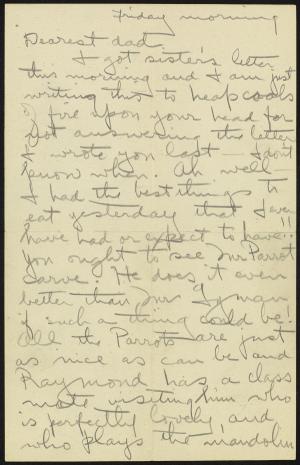 Friday morning
Dearest dad.
I got sister's letter
this morning and I am just
writing this to heap coals
of fire upon your head for
not answering the letter
I wrote you last — I don't
know when. Ah well —
I had the best things to
eat yesterday that I ever
have had or expect to have!!
You ought to see Mr Parrot
carve. He does it even
better than Mr Lyman
if such a thing could be!
All the Parrots are just
as nice as can be and
Raymond has a class
mate visiting him who
is perfectly lovely and
who plays the mandolin